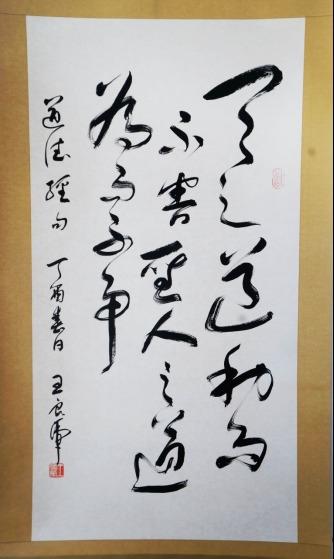 天之道利而
不害聖人之道
為而不爭
道德經句 丁酉春日 王良虎